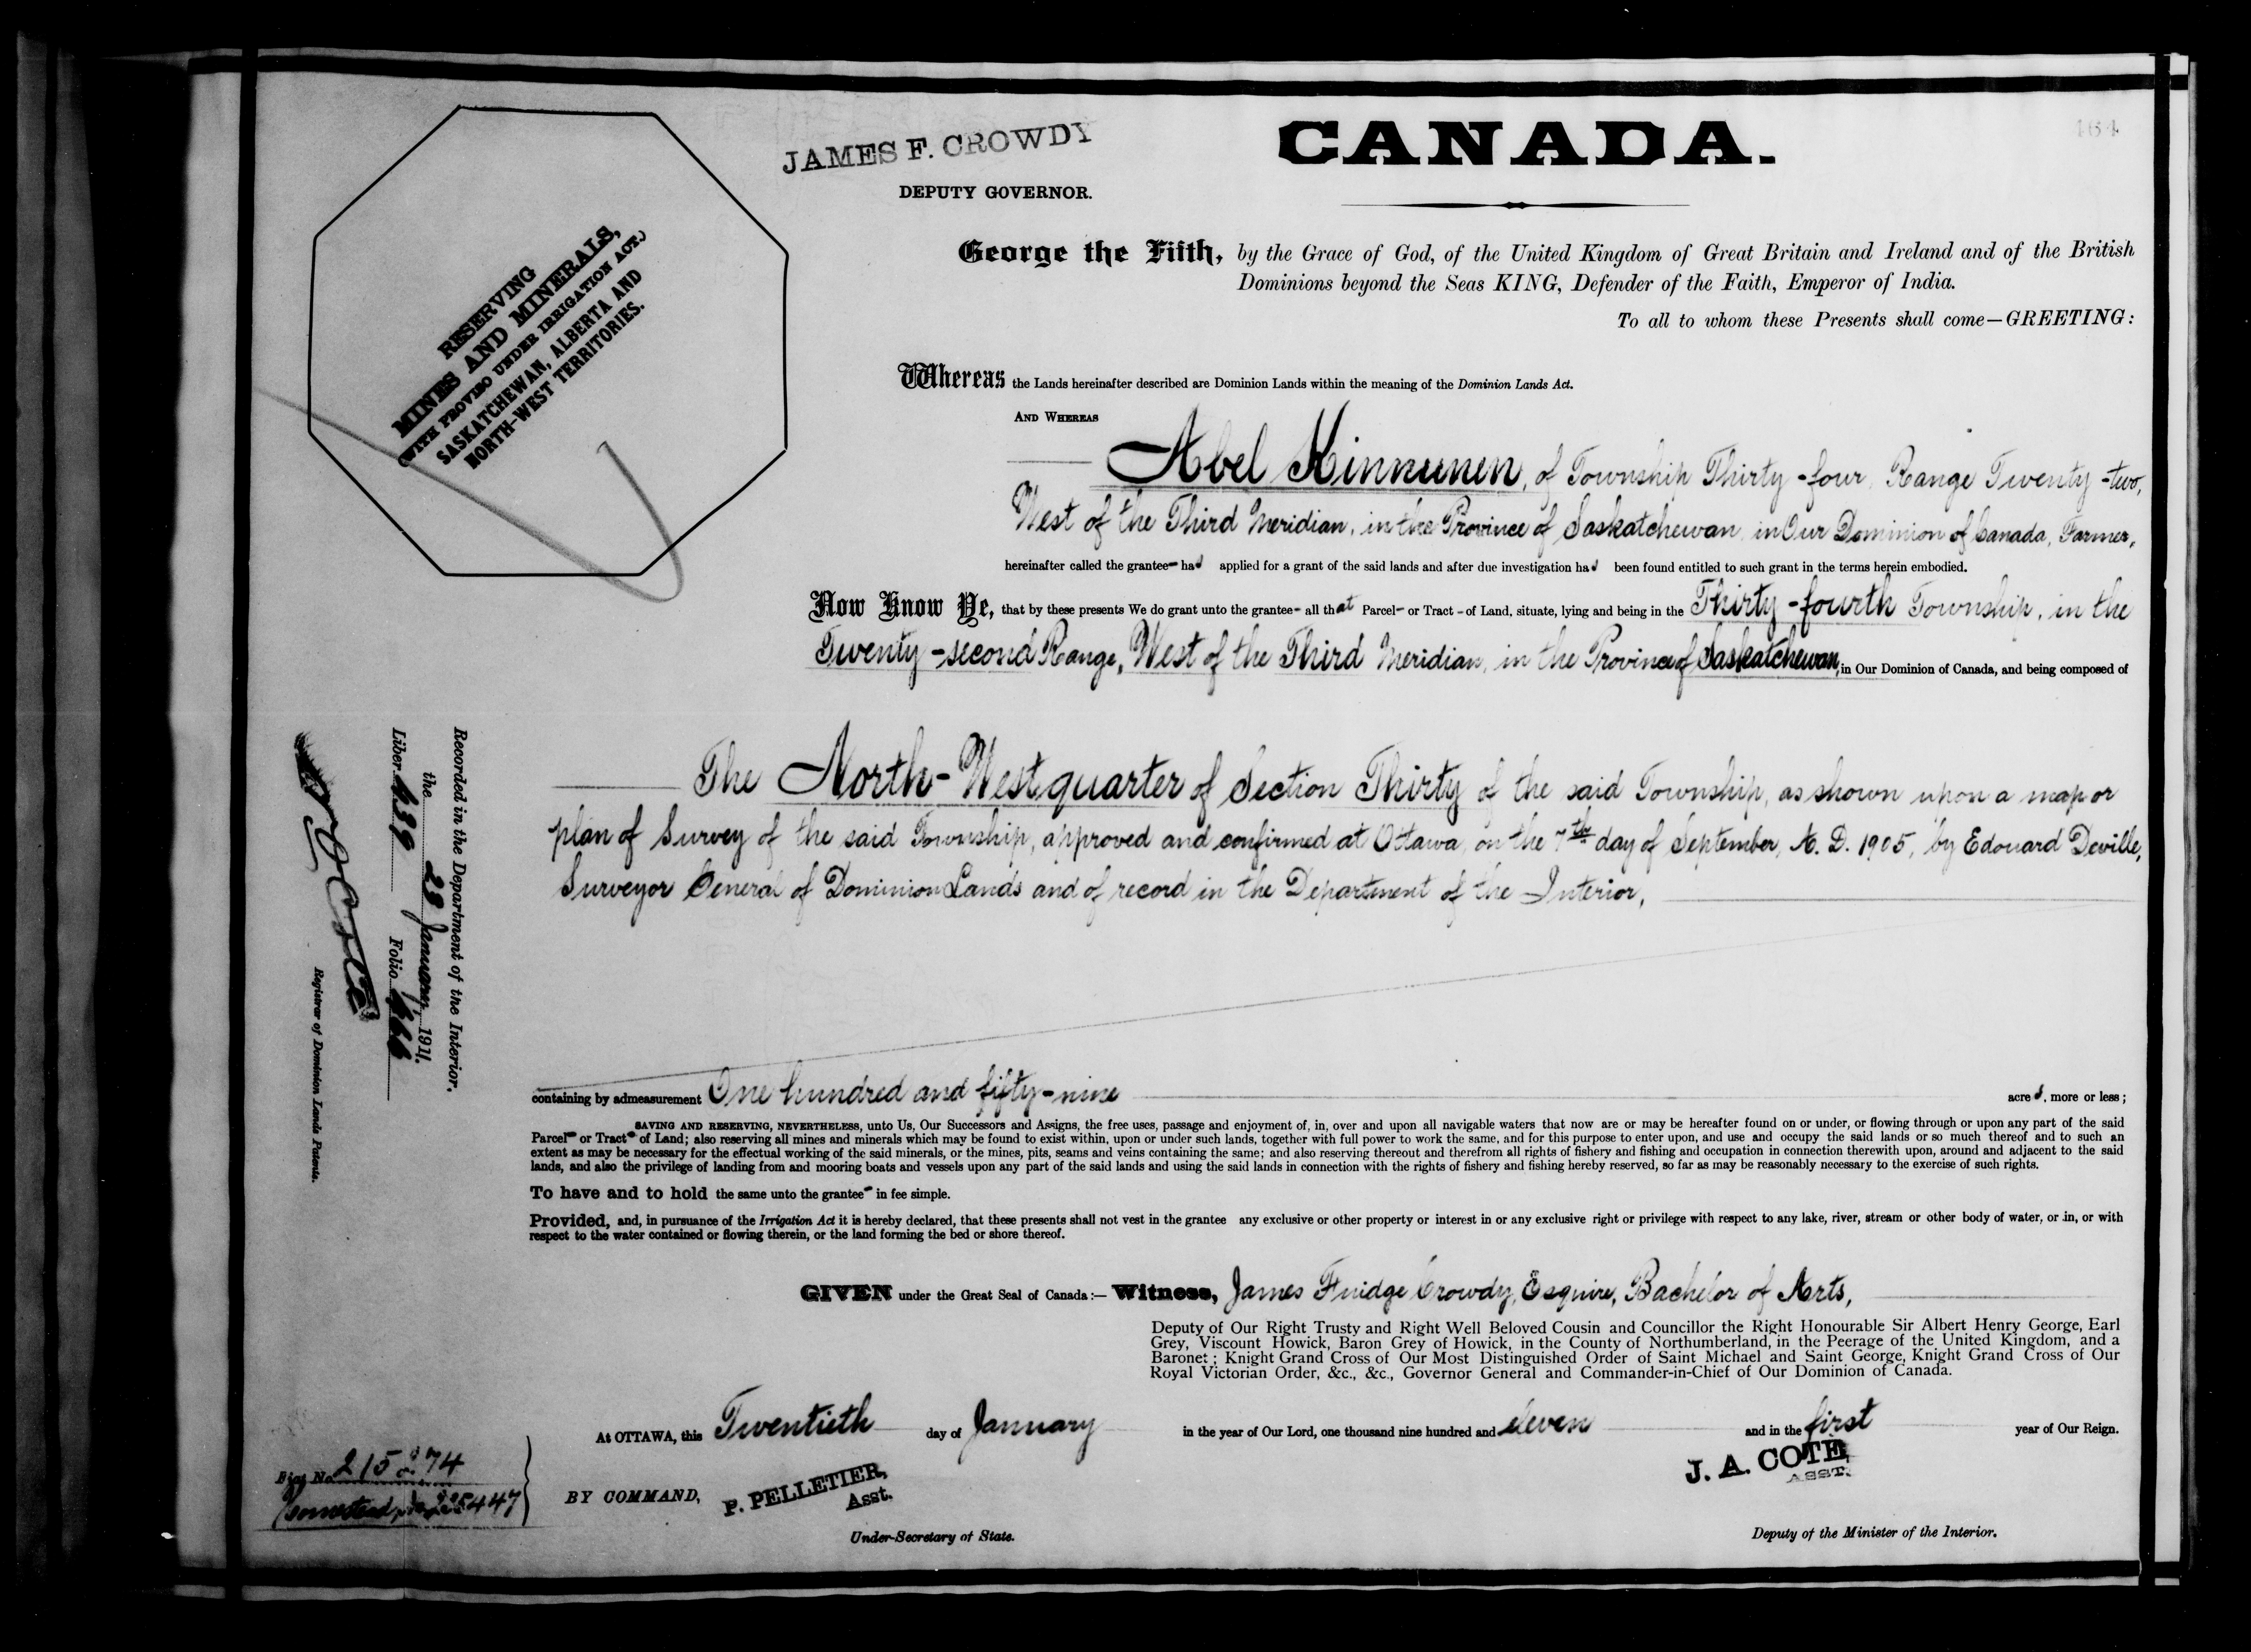 164
JAMES F. CROWDY
DEPUTY GOVERNOR.
CANADA.
RESERVING
MINES AND MINERALS,
(WITH PROVISO UNDER IRRIGATION ACT.)
SASKATCHEWAN, ALBERTA AND
NORTH-WEST TERRITORIES.
George the Fifth, by the Grace of God, of the United Kingdom of Great Britain and Ireland and of the British
Dominions beyond the Seas KING, Defender of the Faith, Emperor of India.
To all to whom these Presents shall come—GREETING:
Whereas the Lands hereinafter described are Dominion Lands within the meaning of the Dominion Lands Act.
AND WHEREAS
Abel Kinnunen, of Township Thirty-four, Range Twenty-two,
West of the Third Meridian, in the Province of Saskatchewan, in Our Dominion of Canada, Farmer,
hereinafter called the grantee- has applied for a grant of the said lands and after due investigation has been found entitled to such grant in the terms herein embodied.
Now Know Ye, that by these presents We do grant unto the grantee- all that Parcel- or Tract - of Land, situate, lying and being in the Thirty-fourth Township, in the
Twenty-second Range, West of the Third Meridian, in the Province of Saskatchewan, in Our Dominion of Canada, and being composed of
The North-West quarter of Section Thirty of the said Township, as shown upon a map or
plan of Survey of the said Township, approved and confirmed at Ottawa, on the 7th day of September, A. D. 1905, by Edouard Deville,
Surveyor General of Dominion Lands and of record in the Department of the Interior,
Recorded in the Department of the Interior,
the 28 January, 1911.
Liber 439 Folio 166
Registrar of Dominion Lands Patents.
containing by admeasurement One hundred and fifty-nine acres, more or less;
SAVING AND RESERVING, NEVERTHELESS, unto Us, Our Successors and Assigns, the free uses, passage and enjoyment of, in, over and upon all navigable waters that now are or may be hereafter found on or under, or flowing through or upon any part of the said
Parcel- or Tract- of Land; also reserving all mines and minerals which may be found to exist within, upon or under such lands, together with full power to work the same, and for this purpose to enter upon, and use and occupy the said lands or so much thereof and to such an
extent as may be necessary for the effectual working of the said minerals, or the mines, pits, seams and veins containing the same; and also reserving thereout and therefrom all rights of fishery and fishing and occupation in connection therewith upon, around and adjacent to the said
lands, and also the privilege of landing from and mooring boats and vessels upon any part of the said lands and using the said lands in connection with the rights of fishery and fishing hereby reserved, so far as may be reasonably necessary to the exercise of such rights.
To have and to hold the same unto the grantee- in fee simple.
Provided, and, in pursuance of the Irrigation Act it is hereby declared, that these presents shall not vest in the grantee any exclusive or other property or interest in or any exclusive right or privilege with respect to any lake, river, stream or other body of water, or in, or with
respect to the water contained or flowing therein, or the land forming the bed or shore thereof.
GIVEN under the Great Seal of Canada:— Witness, James Fuidge Crowdy, Esquire, Bachelor of Arts,
Deputy of Our Right Trusty and Right Well Beloved Cousin and Councillor the Right Honourable Sir Albert Henry George, Earl
Grey, Viscount Howick, Baron Grey of Howick, in the County of Northumberland, in the Peerage of the United Kingdom, and a
Baronet; Knight Grand Cross of Our Most Distinguished Order of Saint Michael and Saint George, Knight Grand Cross of Our
Royal Victorian Order, &c., &c., Governor General and Commander-in-Chief of Our Dominion of Canada.
At OTTAWA, this Twentieth day of January in the year of Our Lord, one thousand nine hundred and eleven and in the first year of Our Reign.
J. A. COTE,
ASST.
BY COMMAND, P. PELLETIER,
Asst.
Under-Secretary of State.
Deputy of the Minister of the Interior.
No. 215 74
Homestead 447